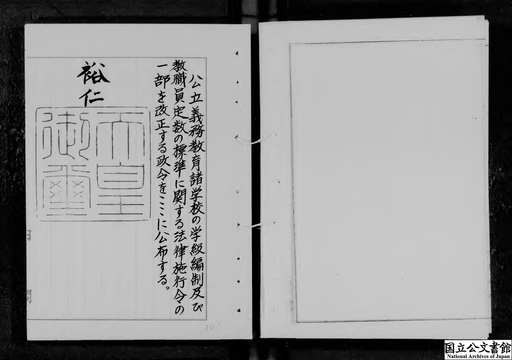 公立義務教育諸学校の学級編制及び
教職員定数の標準に関する法律施行令の
一部を改正する政令をここに公布する。
裕仁
天皇
御璽
国立公文書館
National Archives of Japan